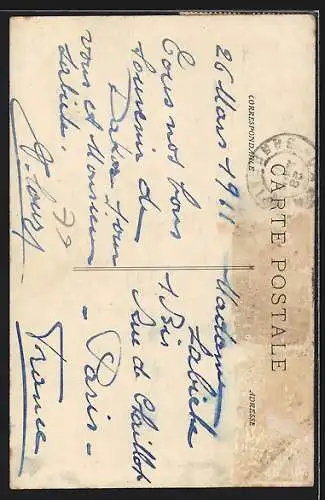 CARTE POSTALE
CORRESPONDANCE
ADRESSE
26 Mars 1911
Tous nos bons
souvenir de
Dakar pour
vous et Monsieur
Labiche.
Madame
Labiche
1 Bis
Rue de Chaillot
- Paris -
France